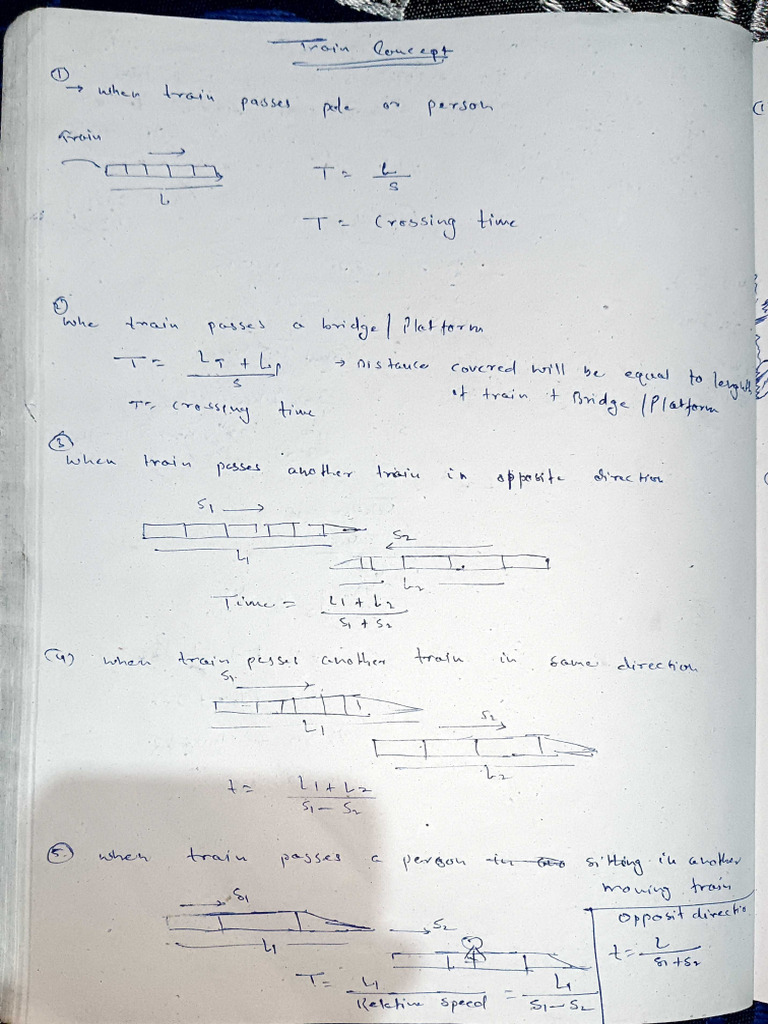 Train Concept
①
→ when train passes pole or person
Train
T = L/S
L
T = Crossing time
②
Whe train passes a bridge/Platform
T = (LT + Lp)/S → Distance covered will be equal to length
of train + Bridge/Platform
T = crossing time
③
When train passes another train in opposite direction
S1 →
S2
L1
L2
Time = (L1 + L2)/(S1 + S2)
(4) when train passes another train in same direction
S1
S2
L1
L2
t = (L1 + L2)/(S1 - S2)
⑤ when train passes a person sitting in another
moving train
S1
S2
L1
Opposit direction
t = L/(S1 + S2)
T = L1/Relative speed = L1/(S1 - S2)